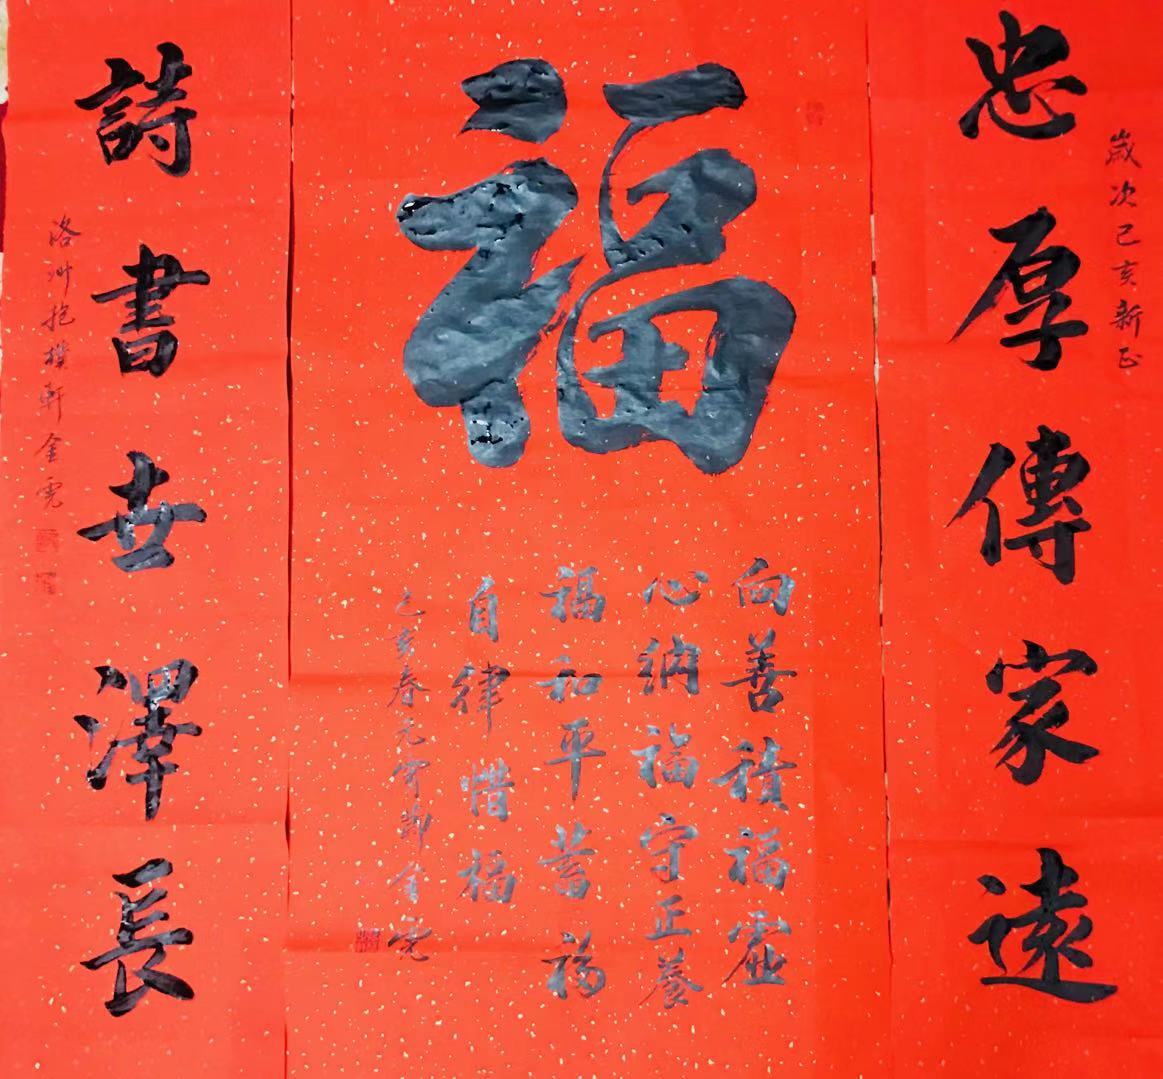 忠厚傳家遠
歲次己亥新正
福
向善積福虛
心納福守正養
福和平蓄福
自律惜福
己亥春元宵節金霓
詩書世澤長
洛州抱樸軒金霓